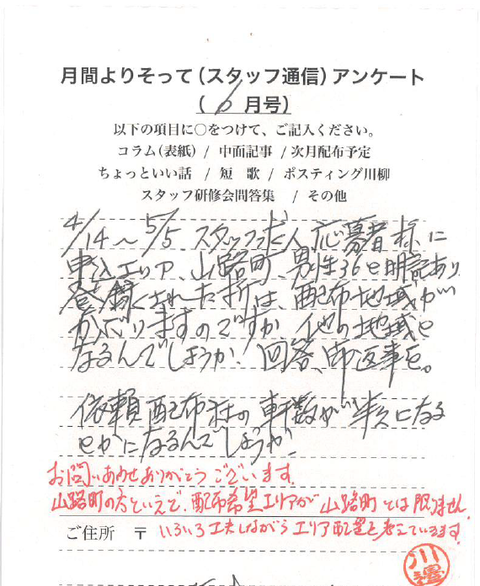 月間よりそって(スタッフ通信)アンケート
(6月号)
以下の項目に○をつけて、ご記入ください。
コラム(表紙) / 中面記事 / 次月配布予定
ちょっといい話 / 短 歌 / ポスティング川柳
スタッフ研修会問答集 / その他
4/14〜5/5 スタッフ求人応募者様に
申込エリア、山路町 男性36と明記あり
登録された所は、配布地域が
かぶりますのですが 他の地域と
なるんでしょうか、回答、御返事を。
依頼配布物の軒数が半分になる
とかになるんでしょうか
お問いあわせありがとうございます。
山路町の方といえど、配布希望エリアが山路町とは限りません。
ご住所 〒 いろいろ工夫しながらエリア配置を考えています。